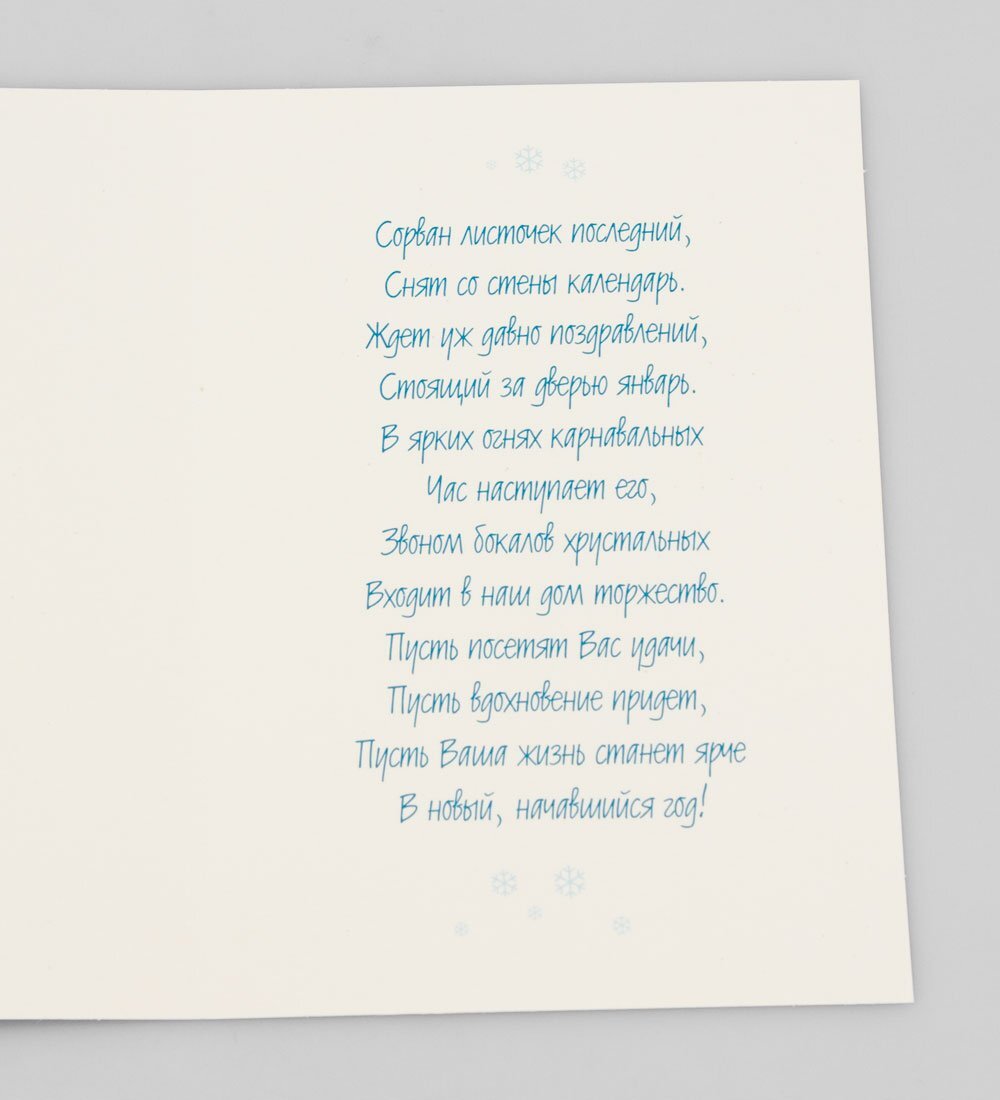 Сорван листочек последний,
Снят со стены календарь.
Ждет уж давно поздравлений,
Стоящий за дверью январь.
В ярких огнях карнавальных
Час наступает его,
Звоном бокалов хрустальных
Входит в наш дом торжество.
Пусть посетят Вас удачи,
Пусть вдохновение придет,
Пусть Ваша жизнь станет ярче
В новый, начавшийся год!